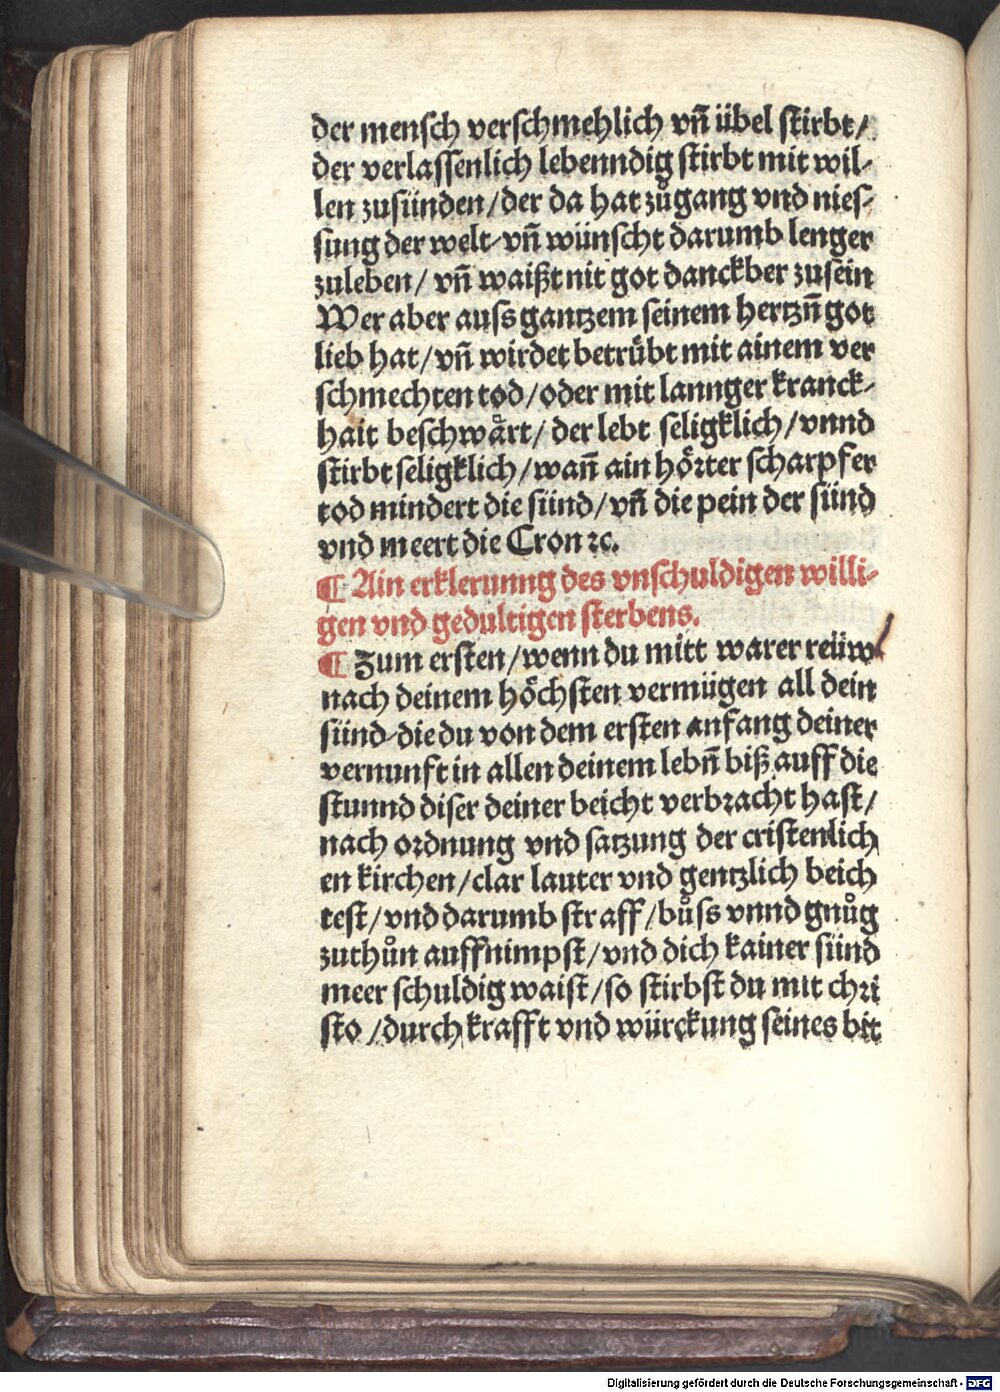 der mensch verschmehlich vn̄ übel stirbt/
der verlassenlich lebenndig stirbt mit wil-
len zusünden/der da hat zůgang vnd nies-
sung der welt-vn̄ wünscht darumb lenger
zuleben/ vn̄ waißt nit got danckber zusein
Wer aber auss gantzem seinem hertzn̄ got
lieb hat/vn̄ wirdet betrůbt mit ainem ver
schmechten tod/oder mit lannger kranck-
hait beschwårt/ der lebt seligklich/vnnd
stirbt seligklich/wan̄ ain hőrter scharpfer
tod mindert die sünd/vn̄ die pein der sünd
vnd meert die Cron ꝛc.
¶ Ain erklerunng des vnschuldigen willi-
gen vnd gedultigen sterbens.
¶ Zum ersten/wenn du mitt warer reüw
nach deinem höchsten vermügen all dein
sünd-die du von dem ersten anfang deiner
vernunft in allen deinem lebn̄ biß auff die
stunnd diser deiner beicht verbꝛacht hast/
nach oꝛdnung vnd satzung der cristenlich
en kirchen/clar lauter vnd gentzlich beich
test/vnd darumb straff/bůss vnnd gnůg
zuthůn auffnimpst/vnd dich kainer sünd
meer schuldig waist/so stirbst du mit chꝛi
sto/durch krafft vnd würckung seines bit
Digitalisierung gefördert durch die Deutsche Forschungsgemeinschaft - DFG